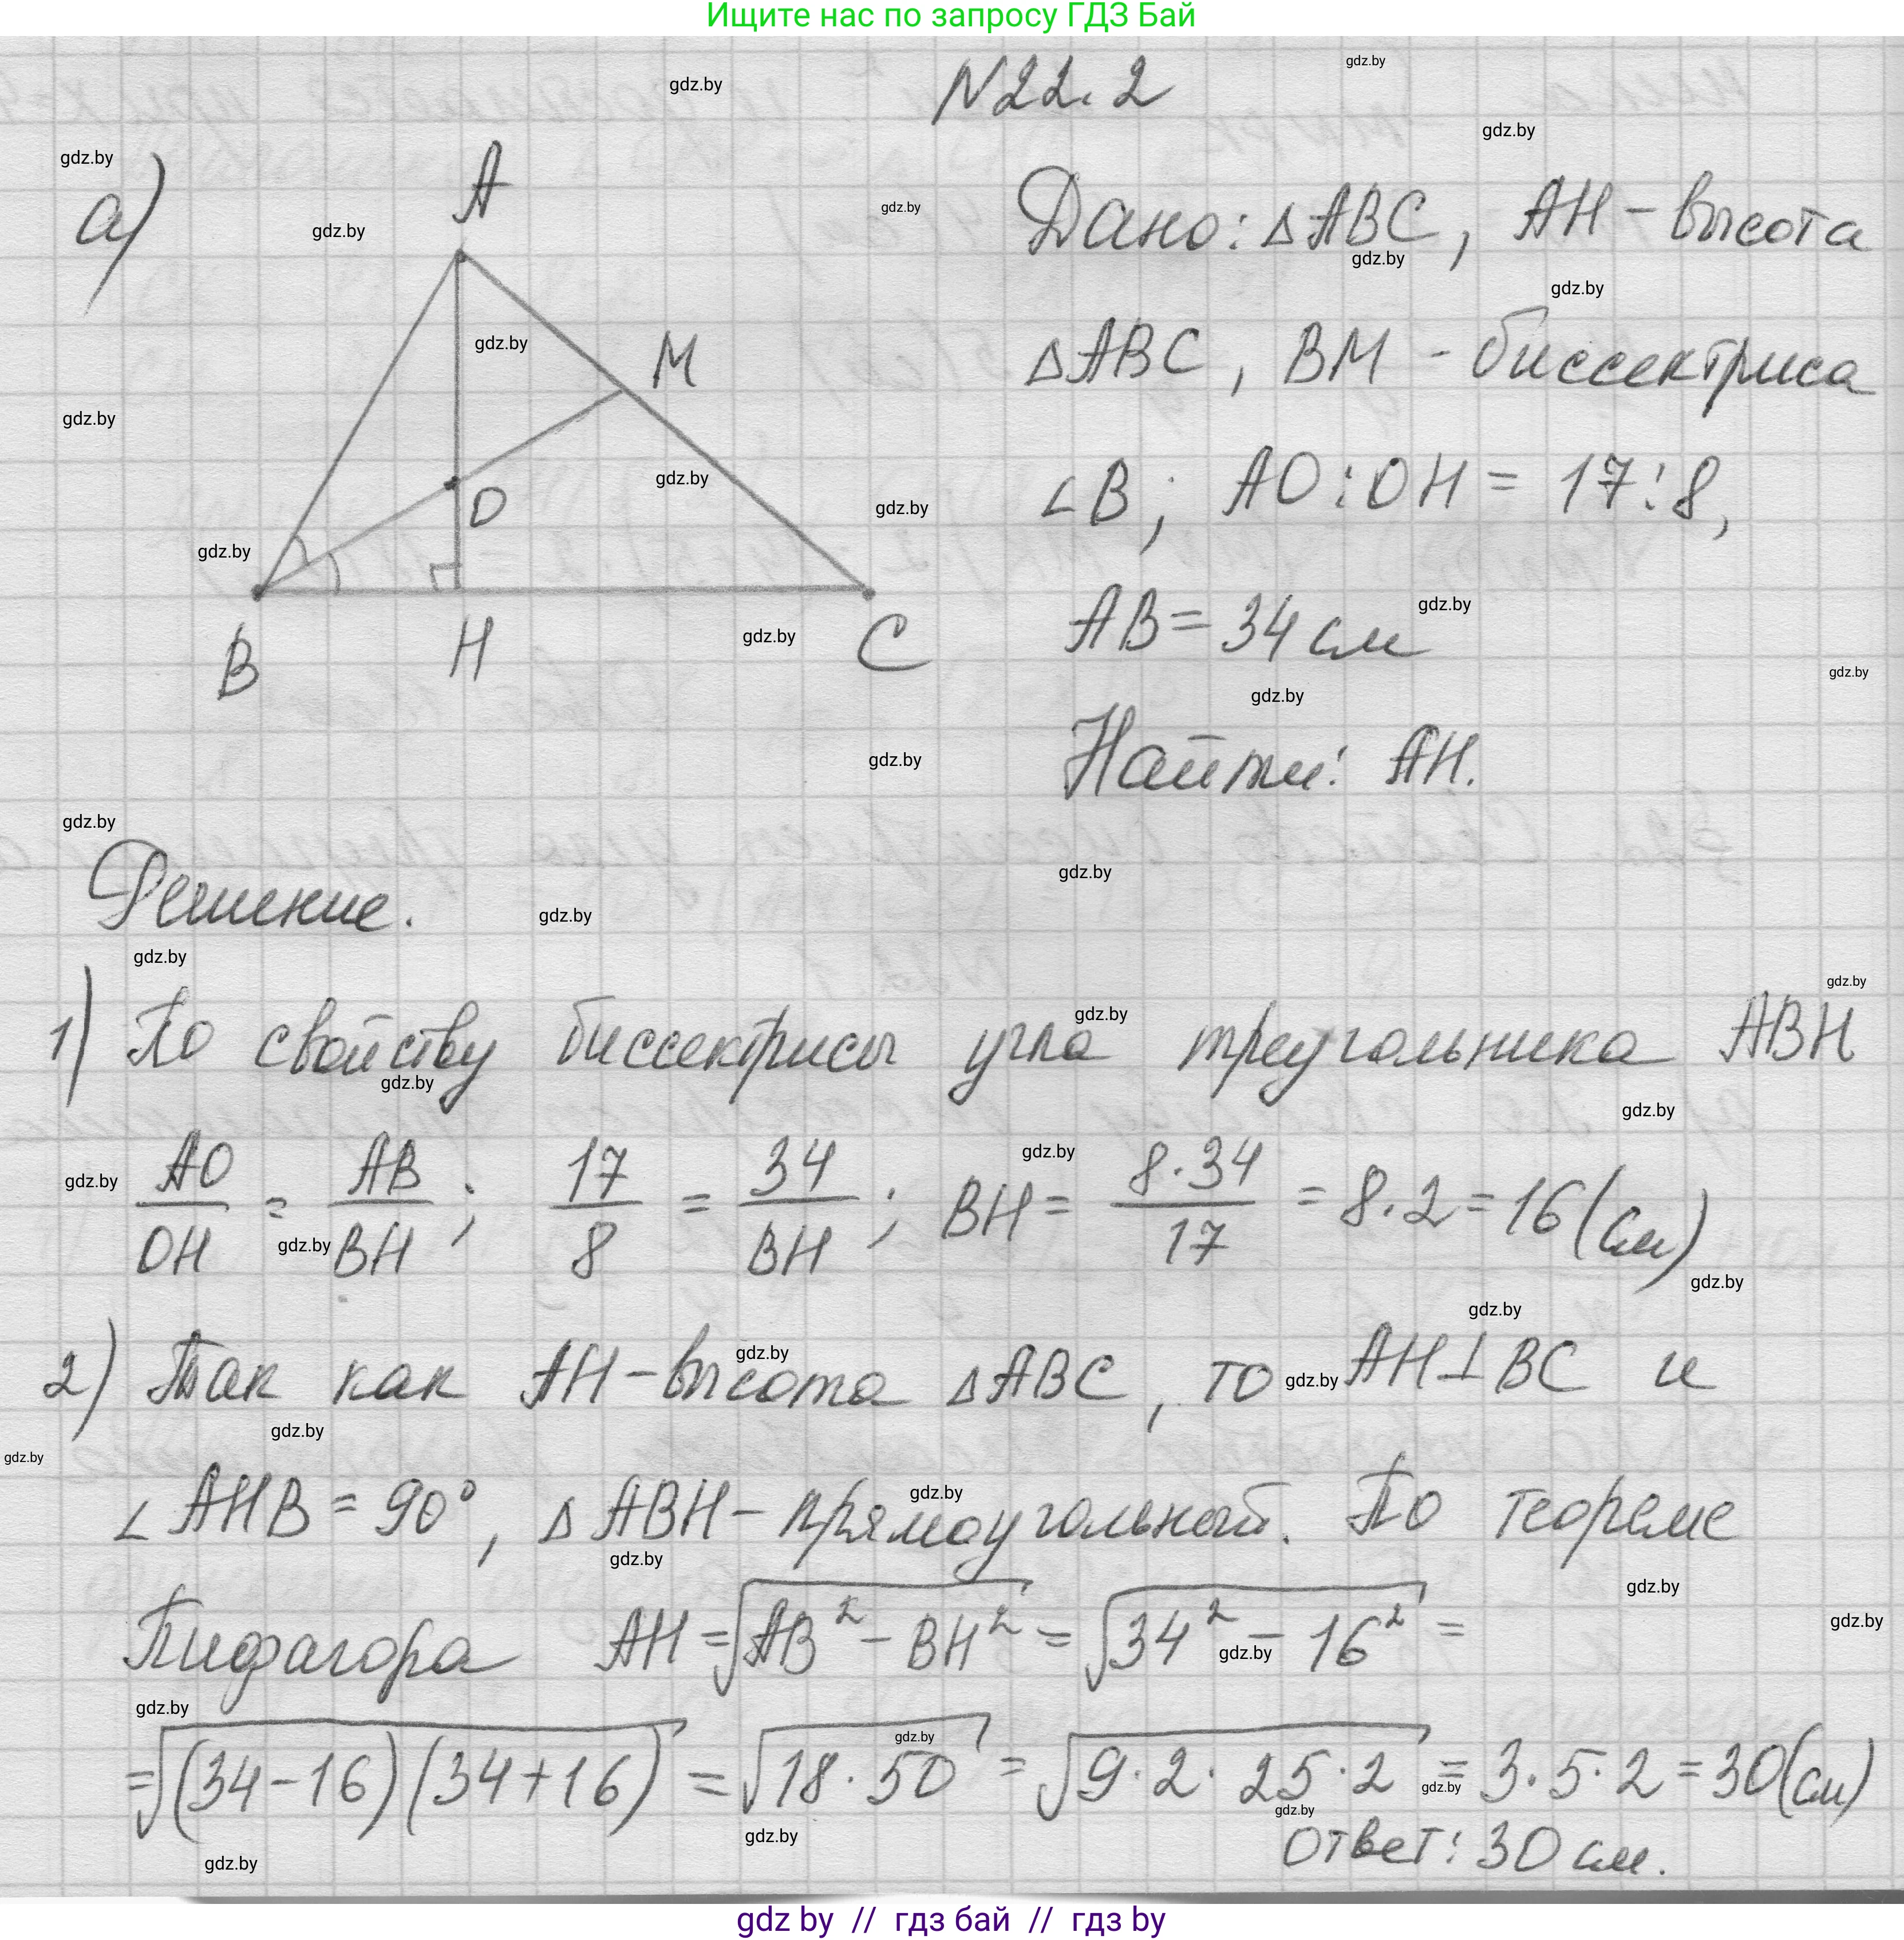 Ищите нас по запросу ГДЗ Бай
N22.2
а)
A
M
O
B
H
C
Дано: ΔABC, AH - высота
ΔABC, BM - биссектриса
∠B; AO:OH = 17:8,
AB = 34 см
Найти: AH.
Решение.
1) По свойству биссектрисы угла треугольника ABH
AO/OH = AB/BH; 17/8 = 34/BH; BH = 8·34/17 = 8·2 = 16(см)
2) Так как AH - высота ΔABC, то AH⊥BC и
∠AHB = 90°, ΔABH - прямоугольный. По теореме
Пифагора AH = √(AB² - BH²) = √(34² - 16²) =
= √((34-16)(34+16)) = √(18·50) = √(9·2·25·2) = 3·5·2 = 30(см)
Ответ: 30 см.
gdz by // гдз бай // гдз by